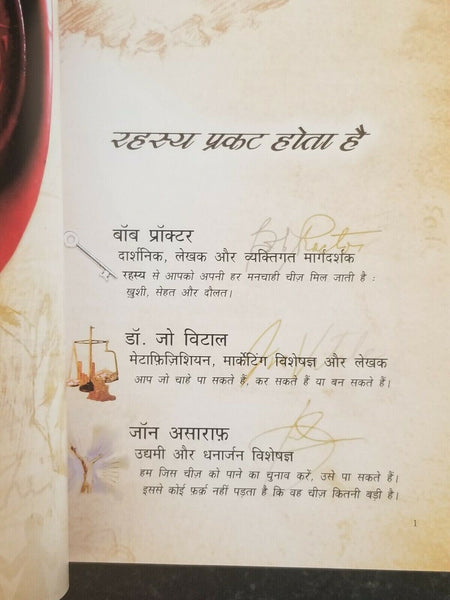 रहस्य प्रकट होता है
बॉब प्रॉक्टर
दार्शनिक, लेखक और व्यक्तिगत मार्गदर्शक
रहस्य से आपको अपनी हर मनचाही चीज़ मिल जाती है :
ख़ुशी, सेहत और दौलत।
डॉ. जो विटाल
मेटाफ़िज़िशियन, मार्केटिंग विशेषज्ञ और लेखक
आप जो चाहे पा सकते हैं, कर सकते हैं या बन सकते हैं।
जॉन असाराफ़
उद्यमी और धनार्जन विशेषज्ञ
हम जिस चीज़ को पाने का चुनाव करें, उसे पा सकते हैं।
इससे कोई फ़र्क़ नहीं पड़ता है कि वह चीज़ कितनी बड़ी है।
1